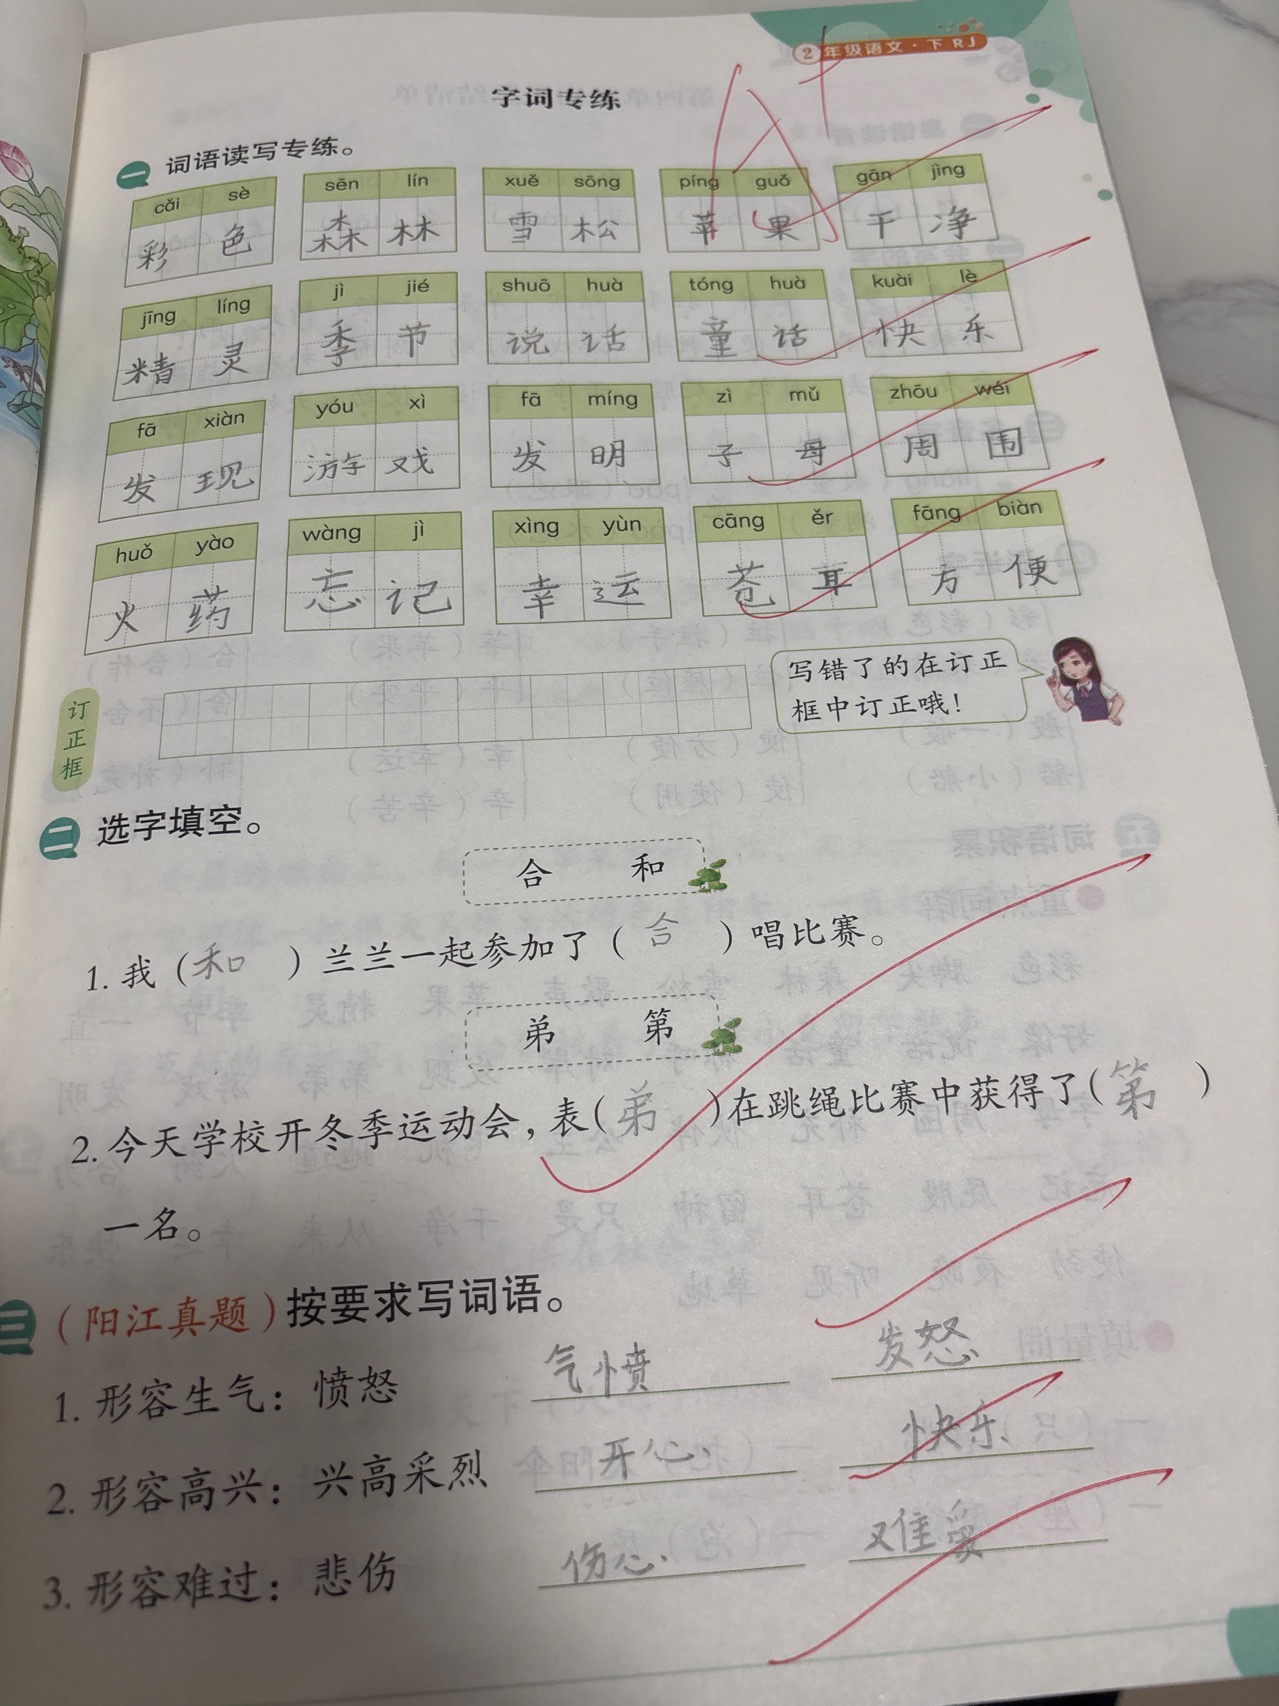 2年级语文·下 RJ
字词专练
一 词语读写专练。
cǎi sè sēn lín xuě sōng píng guǒ gān jìng
彩色 森林 雪松 苹果 干净
jīng líng jì jié shuō huà tóng huà kuài lè
精灵 季节 说话 童话 快乐
fā xiàn yóu xì fā míng zì mǔ zhōu wéi
发现 游戏 发明 子母 周围
huǒ yào wàng jì xìng yùn cāng ěr fāng biàn
火药 忘记 幸运 苍耳 方便
订正框
写错了的在订正
框中订正哦!
二 选字填空。
合 和
1.我(和)兰兰一起参加了(合)唱比赛。
弟 第
2.今天学校开冬季运动会,表(弟)在跳绳比赛中获得了(第)
一名。
三 (阳江真题)按要求写词语。
1.形容生气:愤怒 气愤 发怒
2.形容高兴:兴高采烈 开心 快乐
3.形容难过:悲伤 伤心 难受